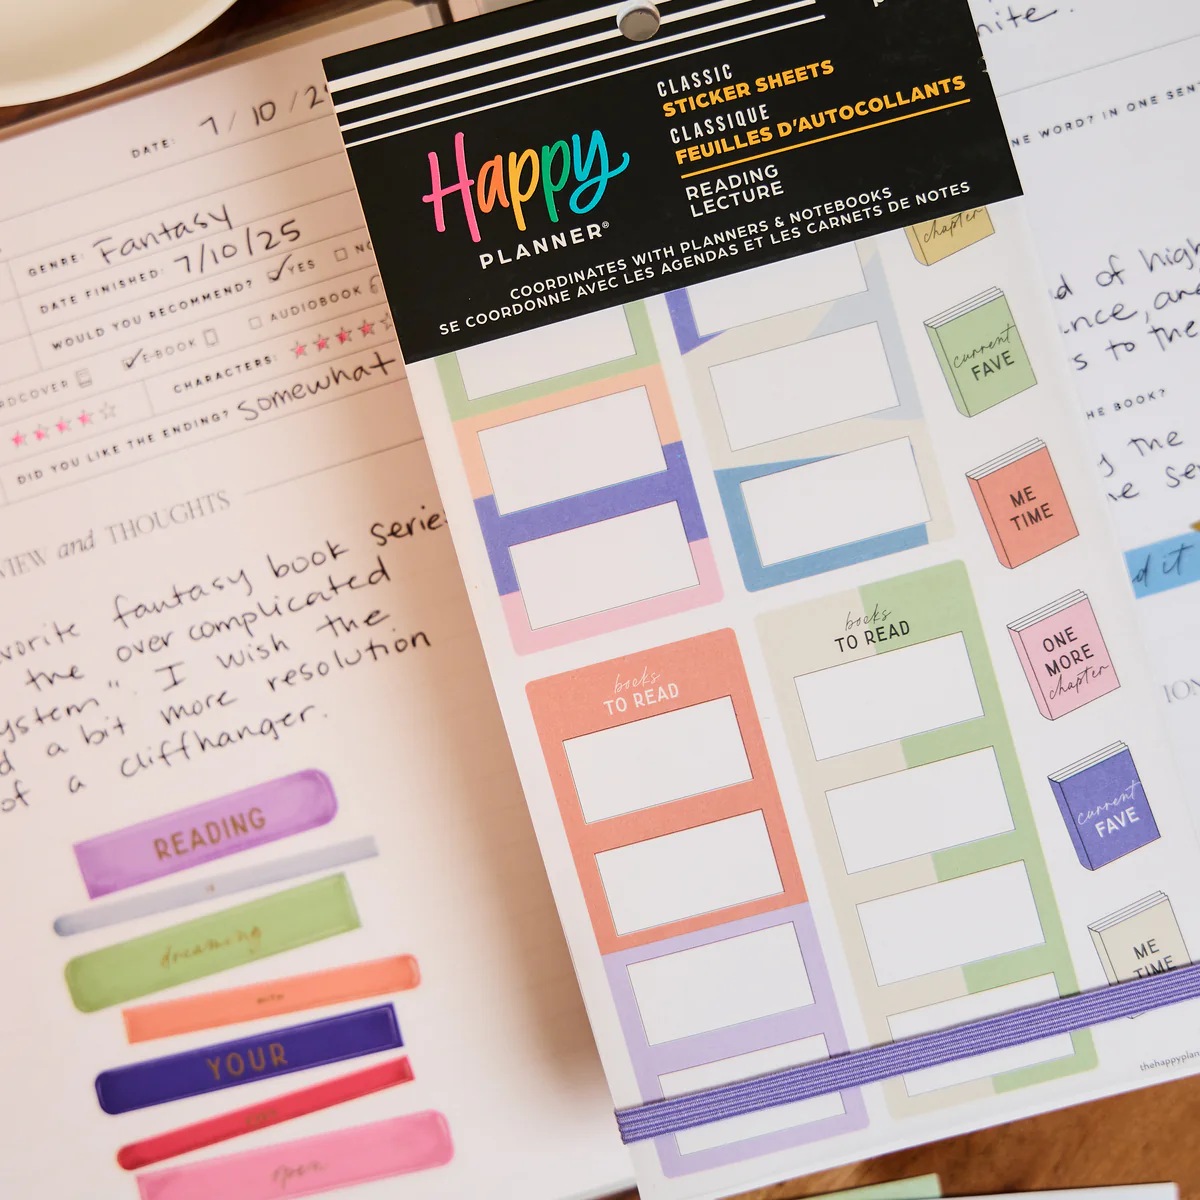 DATE: 7/10/2
GENRE: Fantasy
DATE FINISHED: 7/10/25
WOULD YOU RECOMMEND? YES NO
E-BOOK AUDIOBOOK
CHARACTERS:
DID YOU LIKE THE ENDING? somewhat
VIEW and THOUGHTS
fantasy book serie
the over complicated
ystem". I wish the
a bit more resolution
of a cliffhanger.
READING
IS
dreaming
WITH
YOUR
EYES
open
Happy
PLANNER®
CLASSIC
STICKER SHEETS
CLASSIQUE
FEUILLES D'AUTOCOLLANTS
READING
LECTURE
COORDINATES WITH PLANNERS & NOTEBOOKS
SE COORDONNE AVEC LES AGENDAS ET LES CARNETS DE NOTES
chapter
current
FAVE
ME
TIME
ONE
MORE
chapter
current
FAVE
ME
TIME
books
TO READ
books
TO READ
thehappyplan
NE WORD? IN ONE SENT
d of high
nce, and
s to the
HE BOOK?
y the
e se
d it
ION